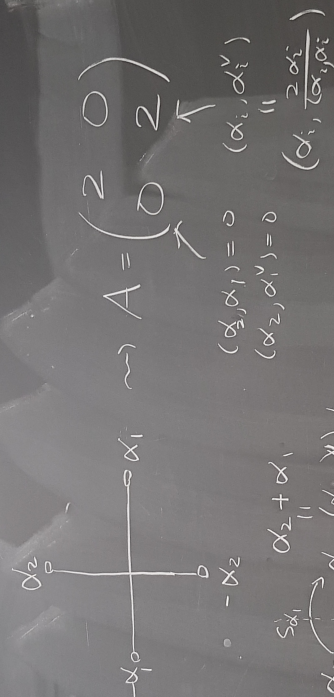 α₂
-α₁ α₁ ⇝ A = ( 2 0
0 2 )
-α₂
(α₂, α₁) = 0
(α₂, α₁^∨) = 0
(α_i, α_i^∨)
||
(α_i, 2α_i / (α_i, α_i))
S_α₁
α₂ + α₁
||